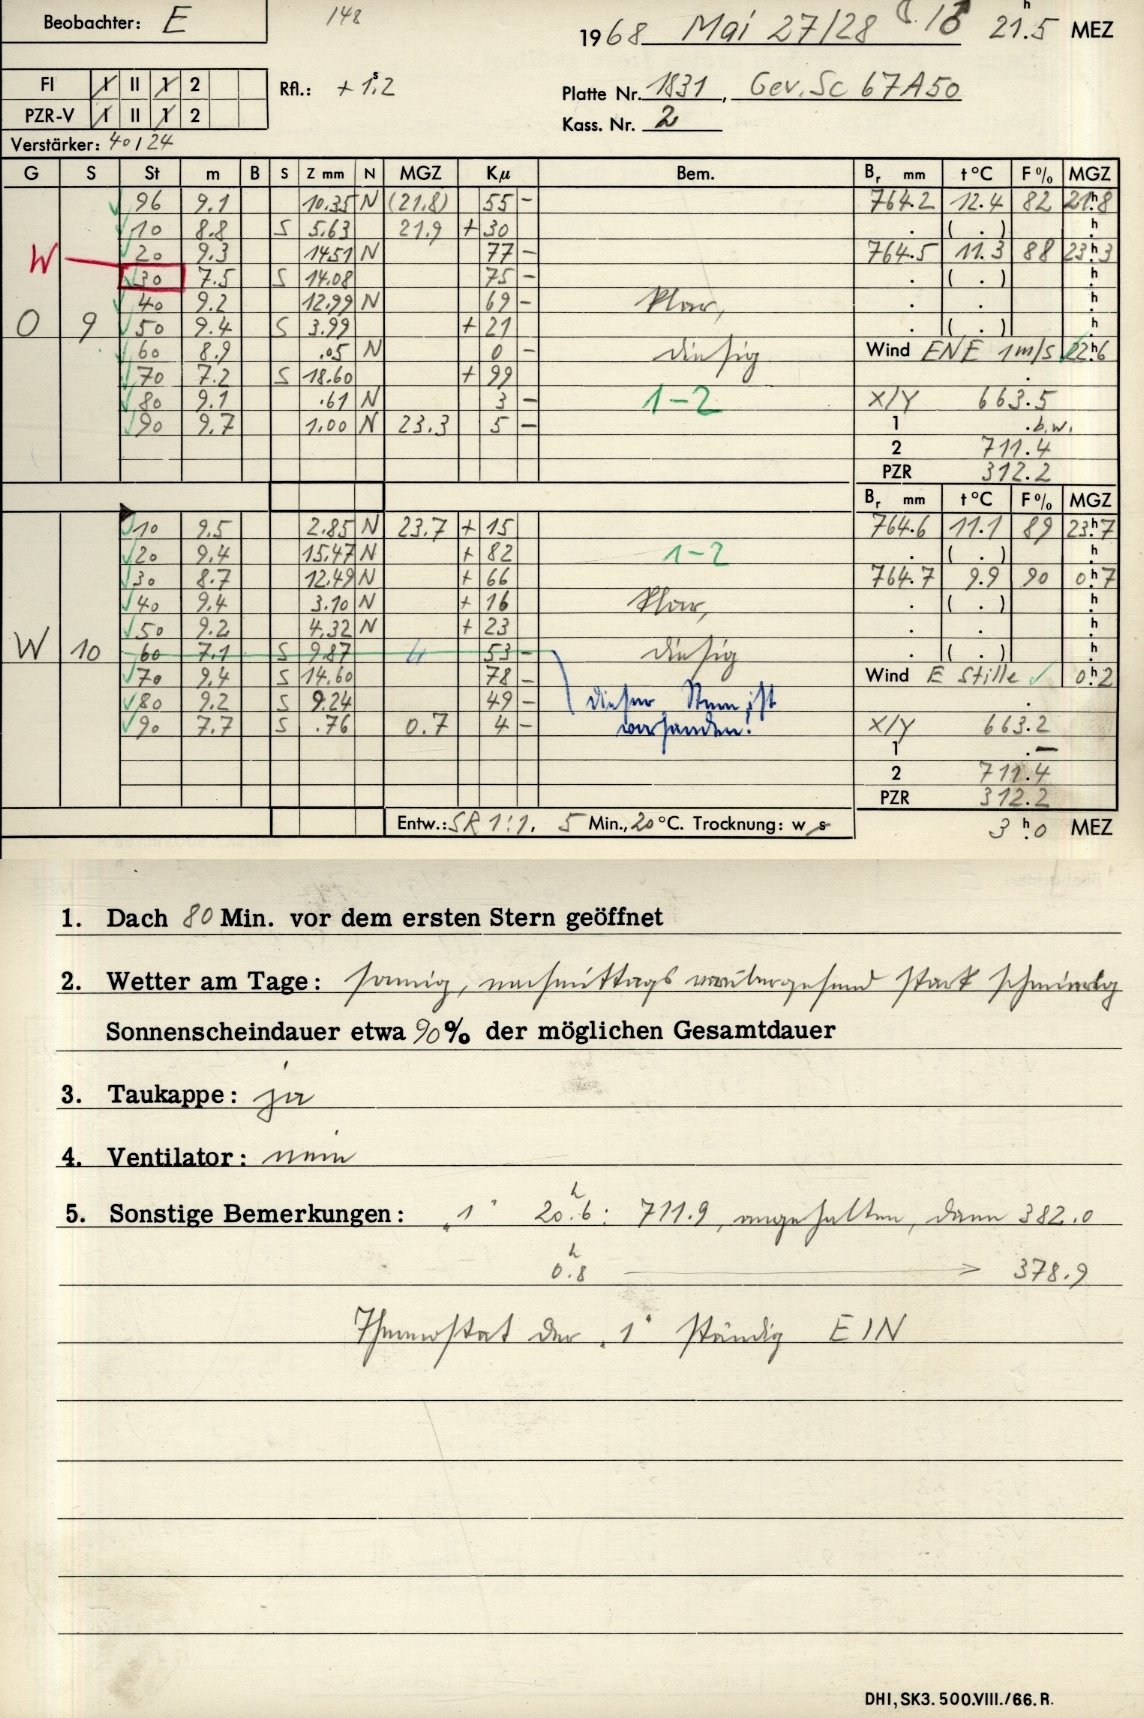 Beobachter: E
148
1968 Mai 27/28 21.5 h MEZ
FI 1 II 1 2
PZR-V 1 II 1 2
Rfl.: + 1.2 s
Platte Nr. 1831, Gev. Sc 67A50
Kass. Nr. 2
Verstärker: 40/24
G S St m B S Z mm N MGZ Kµ Bem. Br mm t°C F% MGZ
96 9.1 10.35 N (21.8) 55 - 764.2 12.4 82 21.8 h
10 8.8 S 5.63 21.9 + 30 . ( . ) h
20 9.3 14.51 N 77 - 764.5 11.3 88 23.3 h
W
30 7.5 S 14.08 75 - . ( . ) h
40 9.2 12.99 N 69 - klar, . . h
O 9 50 9.4 S 3.99 + 21 . ( . ) h
60 8.9 .05 N 0 - diesig Wind ENE 1m/s 22.6 h
70 7.2 S 18.60 + 99 .
80 9.1 .61 N 3 - 1-2 X/Y 663.5
90 9.7 1.00 N 23.3 5 - 1 .b.w.
2 711.4
PZR 312.2
Br mm t°C F% MGZ
10 9.5 2.85 N 23.7 + 15 764.6 11.1 89 23.7 h
20 9.4 15.47 N + 82 1-2 . ( . ) h
30 8.7 12.49 N + 66 764.7 9.9 90 0.7 h
40 9.4 3.10 N + 16 klar, . ( . ) h
50 9.2 4.32 N + 23 . . h
W 10 60 7.1 S 9.87 53 - diesig . ( . ) h
70 9.4 S 14.60 78 - Wind E Stille 0.2 h
80 9.2 S 9.24 49 - dieser Stern ist .
90 7.7 S .76 0.7 4 - vorhanden! X/Y 663.2
1 .—
2 711.4
PZR 312.2
Entw.: SR 1:1, 5 Min., 20°C. Trocknung: w s
3.0 h MEZ
1. Dach 80 Min. vor dem ersten Stern geöffnet
2. Wetter am Tage: sonnig, nachmittags vorübergehend stark
Sonnenscheindauer etwa 90% der möglichen Gesamtdauer
3. Taukappe: ja
4. Ventilator: nein
5. Sonstige Bemerkungen: „1" 20.6 h: 711.9, angehalten, dann 382.0
0.8 h → 378.9
Thermostat der „1" ständig EIN
DHI, SK3. 500.VIII./66. R.